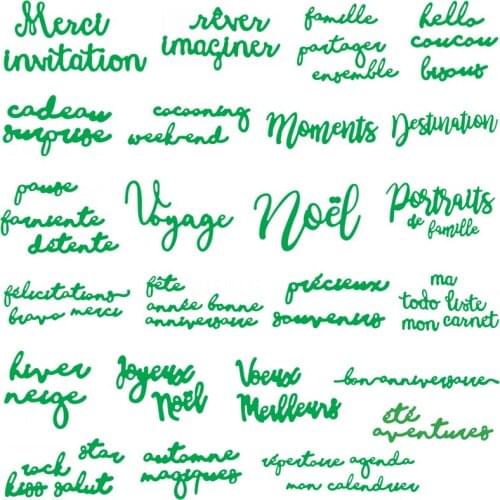 Merci
invitation
rêver
imaginer
famille
partager
ensemble
hello
coucou
bisous
cadeau
surprise
cocooning
week-end
Moments
Destination
pause
farniente
détente
Voyage
Noël
Portraits
de famille
félicitations
bravo merci
fête
année bonne
anniversaire
précieux
souvenirs
ma
todo liste
mon carnet
hiver
neige
Joyeux
Noël
Voeux
Meilleurs
bon anniversaire
été
aventures
star
rock
kiss salut
automne
magiques
répertoire agenda
mon calendrier